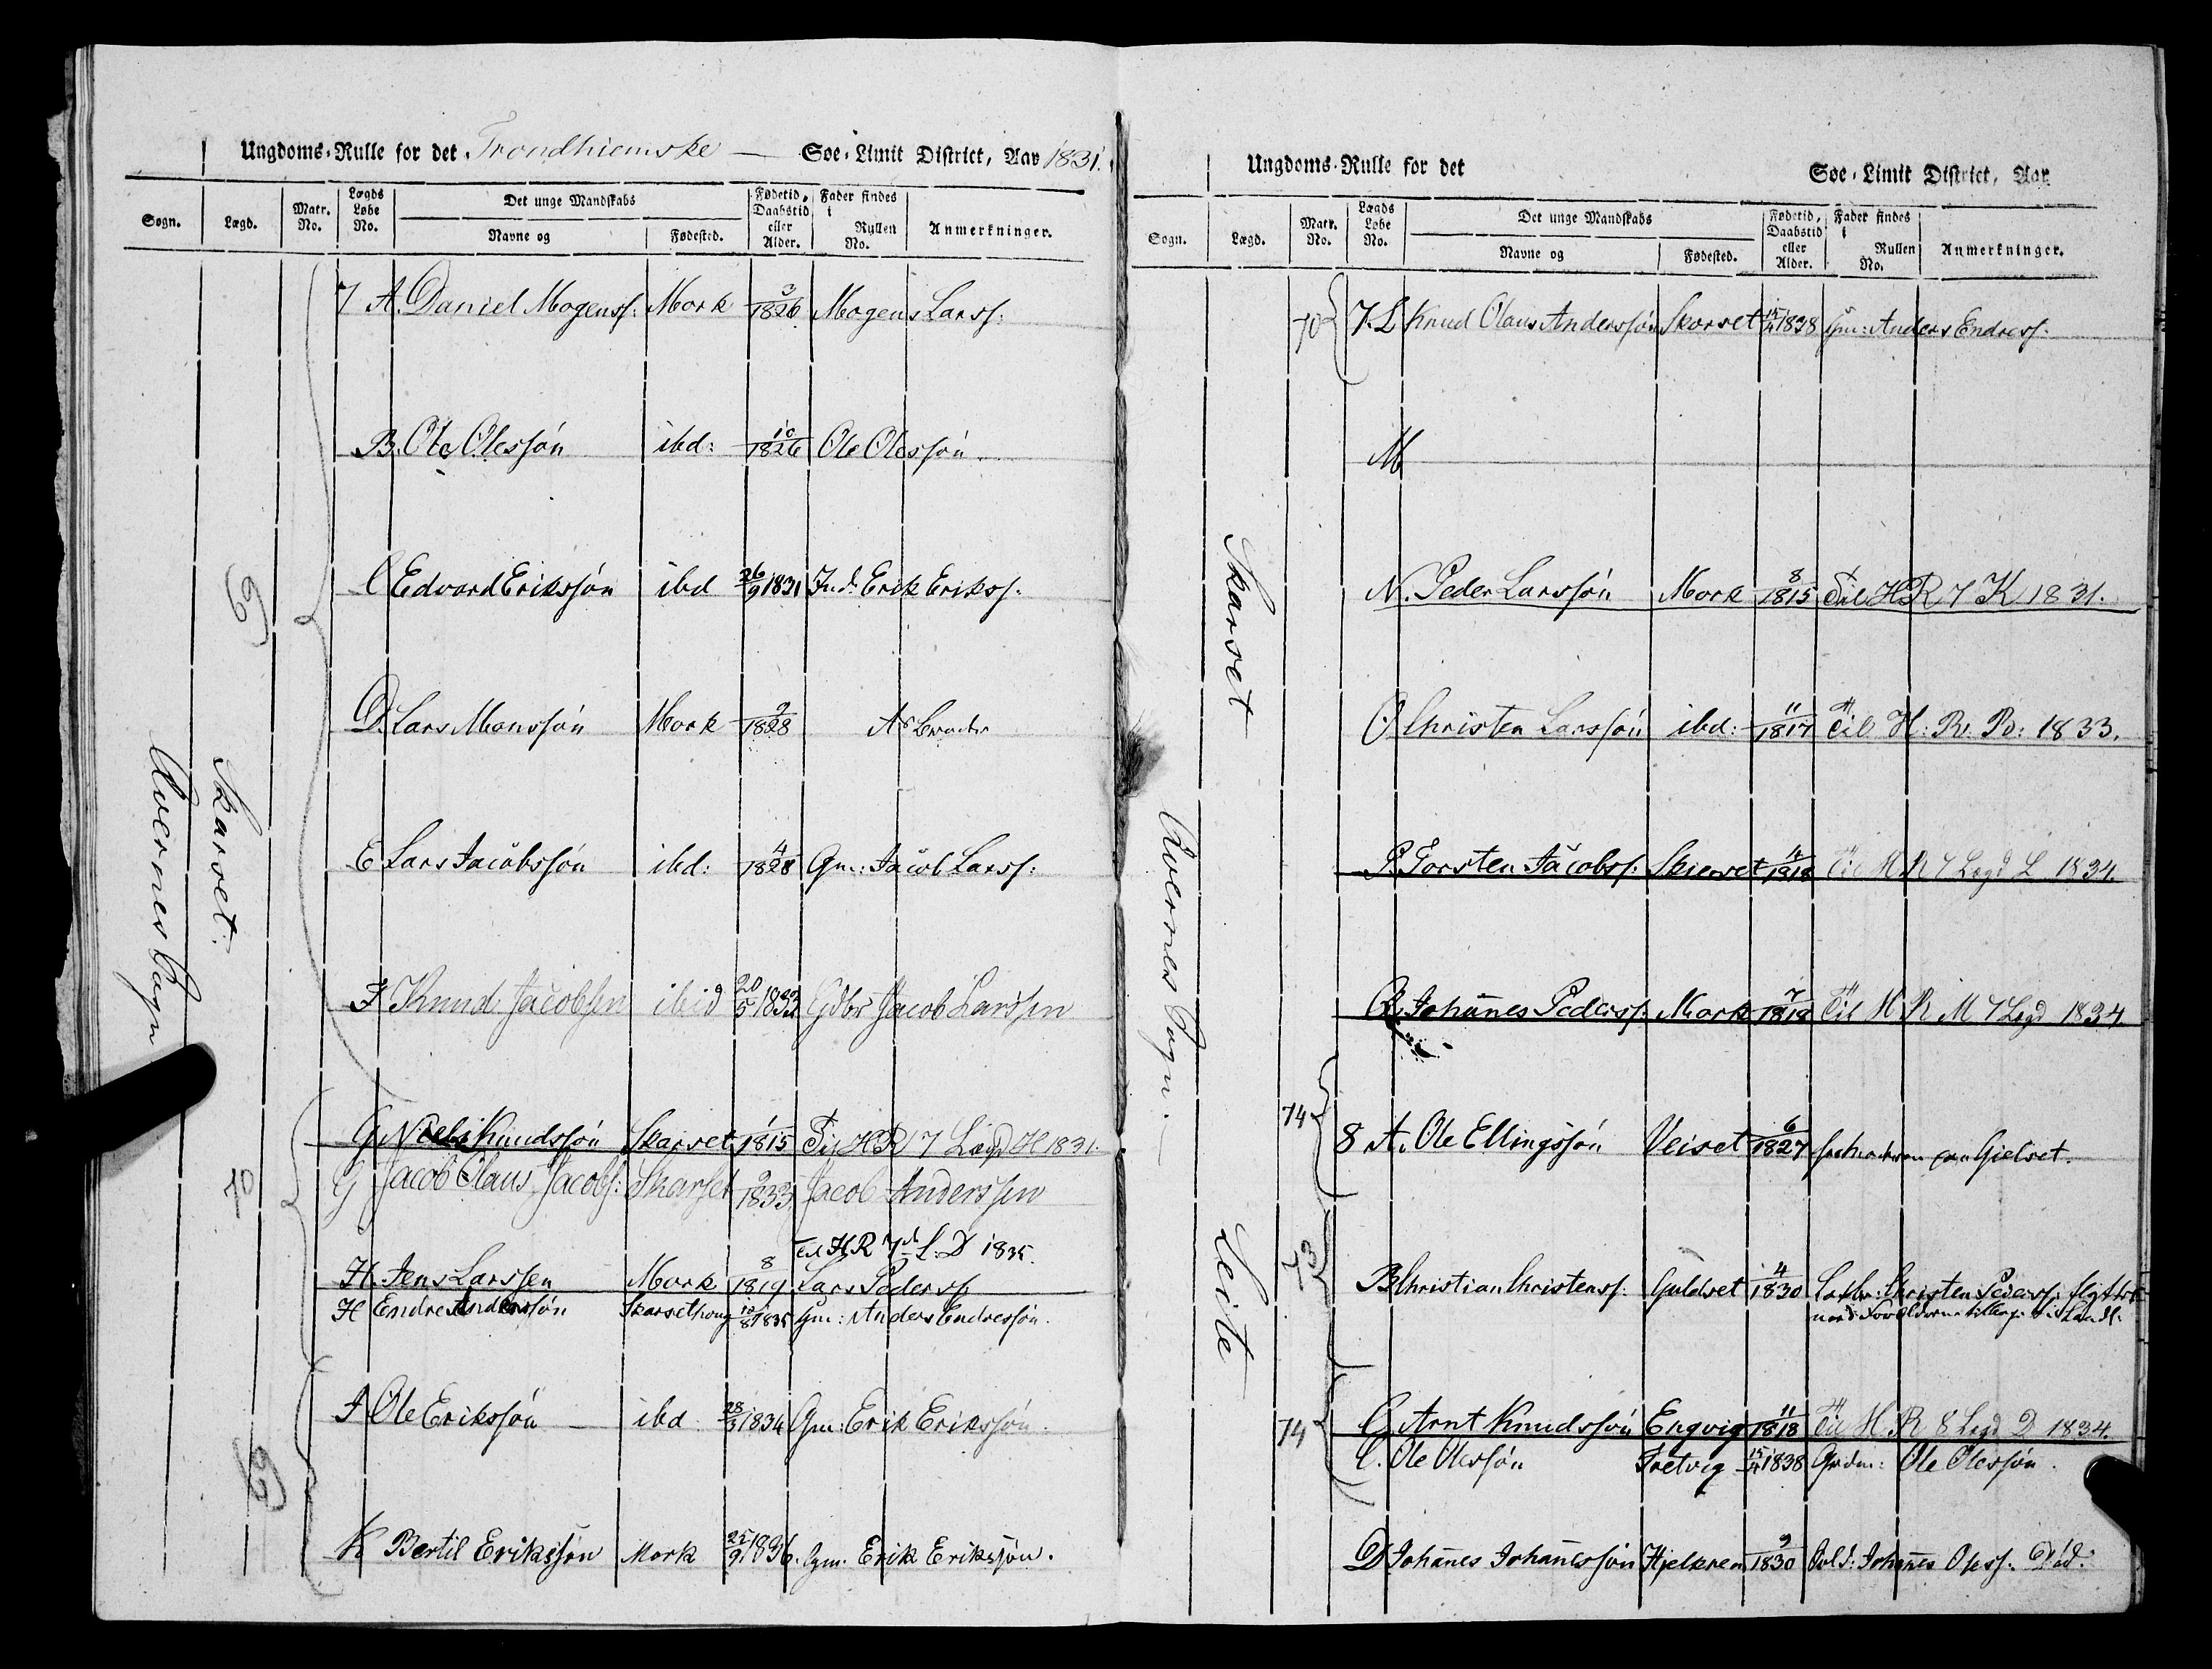 Ungdoms-Rulle for det Trondhiemske — Søe-Limit District, Aar 1831.
Sogn. Lægd. Matr. No. Lægds Løbe No. Det unge Mandskabs Navne og Fødested. Fødetid, Daabstid eller Alder. Fader findes i Rullen No. Anmerkninger.
Qvernes Sogn
Skarset.
69
7 A. Daniel Mogenss: Mork 3/1826 Mogens Larss:
B. Ole Olessøn ibd: 10/1826 Ole Olessøn.
C Edvard Erikssøn ibd 26/9 1831 Ind: Erik Erikss.
D. Lars Monssøn Mork 9/1828 As Broder
E Lars Jacobssøn ibd: 4/1828 Gm: Jacob Larss:
F Knud Jacobsen ibid 20/5 1833 Gdbr Jacob Larssen
70
G Niels Knudssøn Skarset 1/1815 Til HR 7 Lægd H 1831.
G Jacob Olaus Jacobs: Skarset 9/1833 Jacob Anderssen
til HR 7de L: D 1835.
H. Jens Larssen Mork 8/1819 Lars Pederss
H Endre Anderssøn Skarsethoug 10/8 1835 Gm: Anders Endressøn.
69
I Ole Erikssøn — ibd 28/3 1834 Gm: Erik Erikssøn.
K Bertil Erikssøn Mork 25/9 1836. Gm. Erik Erikssøn.
Ungdoms-Rulle for det Søe-Limit District, Aar
Sogn. Lægd. Matr. No. Lægds Løbe No. Det unge Mandskabs Navne og Fødested. Fødetid, Daabstid eller Alder. Fader findes i Rullen No. Anmerkninger.
Qvernes Sogn.
Skarset
70 7. L Knud Olaus Anderssøn Skorset 15/4 1838 Gm: Anders Endress.
M
N. Peder Larssøn Mork 8/1815 Til HR 7 K 1831.
O Christen Larssøn ibd: 11/1817 Til H: R. B: 1833.
P. Torsten Jacobss: Skierset 4/1818 Til H R 7 Lægd L 1834.
Q. Johannes Pederss. Mork 7/1818 Til H R M 7 Lægd 1834.
Leite
74 8 A. Ole Ellingssøn Veiset 6/1827 Gielset.
73 B Christian Christenss: Guldset 4/1830 Christen Pederss.
74 C. Arnt Knudssøn Engvig 11/1818 Til H. R 8 Lægd D 1834.
C. Ole Olessøn Tretvig 15/4 1838 Grdm: Ole Olessøn.
D Johannes Johannessøn Hjelkrem 9/1830 Sold: Johannes Oless. Død.